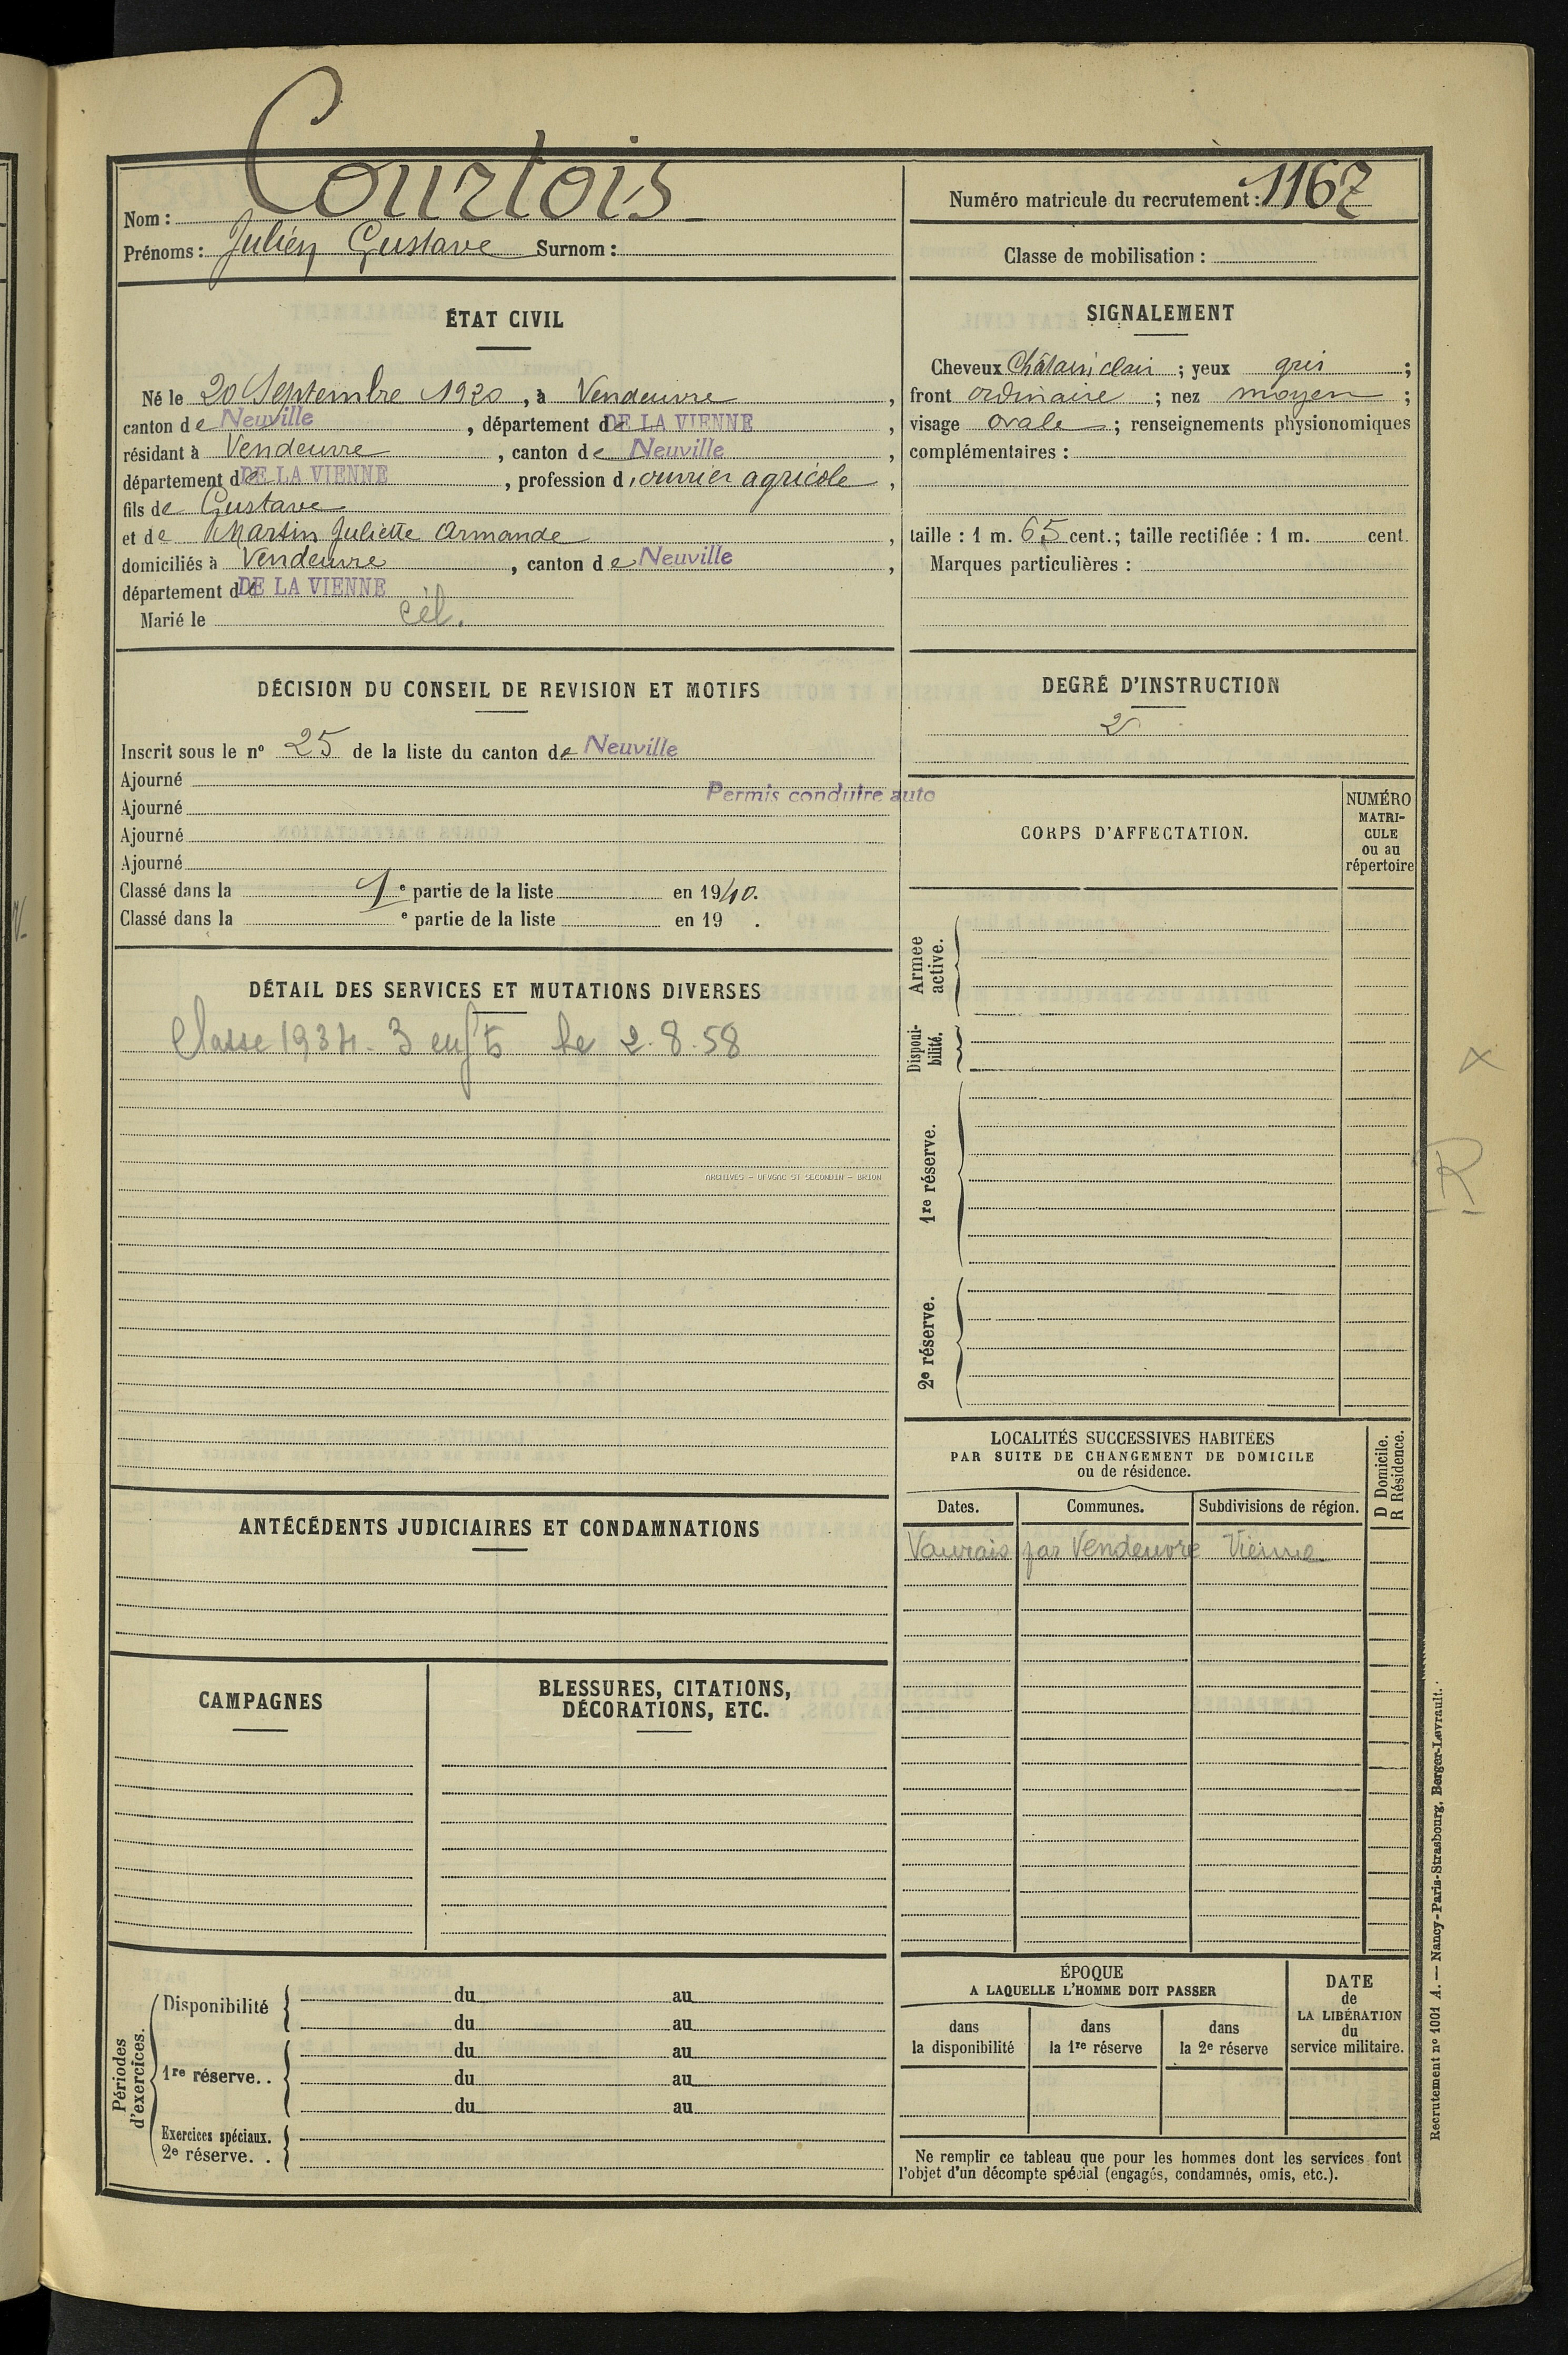 Courtois
Nom :
Prénoms : Julien Gustave Surnom :
Numéro matricule du recrutement : 1167
Classe de mobilisation :
ÉTAT CIVIL
Né le 20 Septembre 1920, à Vendeuvre,
canton de Neuville, département de DE LA VIENNE,
résidant à Vendeuvre, canton de Neuville,
département de DE LA VIENNE, profession d'ouvrier agricole,
fils de Gustave
et de Martin Juliette Armande,
domiciliés à Vendeuvre, canton de Neuville,
département de DE LA VIENNE
Marié le cél.
SIGNALEMENT
Cheveux Châtain clair ; yeux gris ;
front ordinaire ; nez moyen ;
visage ovale ; renseignements physionomiques
complémentaires :
taille : 1 m. 65 cent. ; taille rectifiée : 1 m. cent.
Marques particulières :
DÉCISION DU CONSEIL DE REVISION ET MOTIFS
Inscrit sous le nº 25 de la liste du canton de Neuville
Ajourné
Permis conduire auto
Ajourné
Ajourné
Ajourné
Classé dans la 1e partie de la liste en 1940.
Classé dans la e partie de la liste en 19 .
DEGRÉ D'INSTRUCTION
2
CORPS D'AFFECTATION.
NUMÉRO
MATRI-
CULE
ou au
répertoire
Armée
active.
Disponi-
bilité.
1re réserve.
2e réserve.
DÉTAIL DES SERVICES ET MUTATIONS DIVERSES
Classe 1934. 3 enfts le 2.8.58
ARCHIVES - UFVGAC ST SECONDIN - BRION
X
R
LOCALITÉS SUCCESSIVES HABITÉES
PAR SUITE DE CHANGEMENT DE DOMICILE
ou de résidence.
D Domicile.
R Résidence.
Dates. Communes. Subdivisions de région.
Vaurais par Vendeuvre Vienne
ANTÉCÉDENTS JUDICIAIRES ET CONDAMNATIONS
CAMPAGNES
BLESSURES, CITATIONS,
DÉCORATIONS, ETC.
Périodes
d'exercices.
Disponibilité
du au
du au
1re réserve. .
du au
du au
du au
Exercices spéciaux.
2e réserve. .
ÉPOQUE
A LAQUELLE L'HOMME DOIT PASSER
dans
la disponibilité
dans
la 1re réserve
dans
la 2e réserve
DATE
de
LA LIBÉRATION
du
service militaire.
Ne remplir ce tableau que pour les hommes dont les services font
l'objet d'un décompte spécial (engagés, condamnés, omis, etc.).
Recrutement nº 1001 A. — Nancy-Paris-Strasbourg, Berger-Levrault.